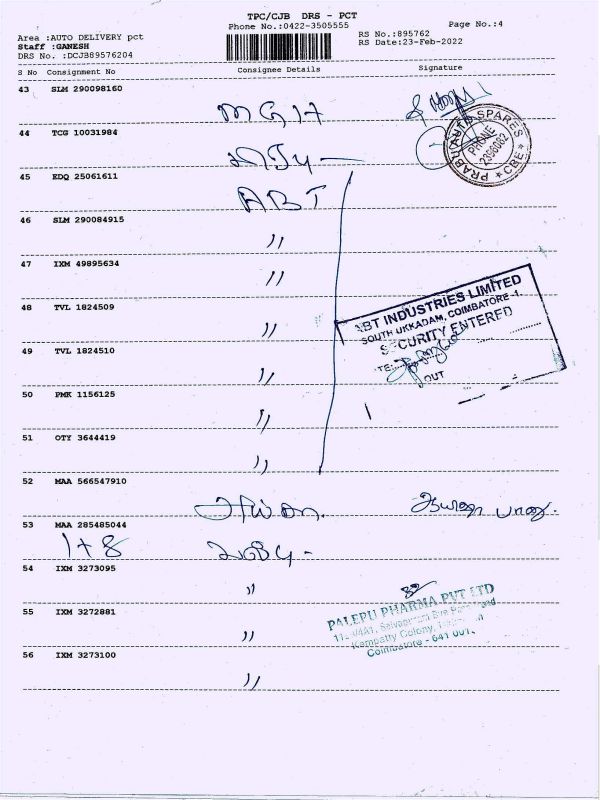 TPC/CJB DRS - PCT
Phone No.:0422-3505555
Page No.:4
Area :AUTO DELIVERY pct
Staff :GANESH
DRS No. :DCJB89576204
RS No.:895762
RS Date:23-Feb-2022
S No Consignment No Consignee Details Signature
43 SLM 290098160
44 TCG 10031984
PRABU AUTO SPARES
PHONE
2396082
* CBE *
45 EDQ 25061611
ABT
46 SLM 290084915
"
47 IXM 49895634
"
ABT INDUSTRIES LIMITED
SOUTH UKKADAM, COIMBATORE-1.
SECURITY ENTERED
OUT
48 TVL 1824509
"
49 TVL 1824510
"
50 PMK 1156125
"
51 OTY 3644419
"
52 MAA 566547910
53 MAA 285485044
1+8
54 IXM 3273095
"
PALEPU PHARMA PVT LTD
Coimbatore - 641 001.
55 IXM 3272881
"
56 IXM 3273100
"